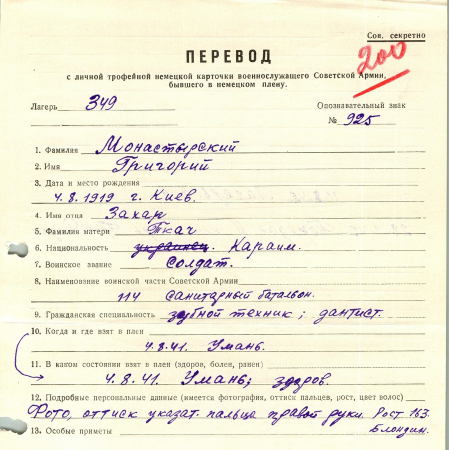 Сов. секретно
200
ПЕРЕВОД
с личной трофейной немецкой карточки военнослужащего Советской Армии,
бывшего в немецком плену.
Лагерь 349 Опознавательный знак
№ 925
1. Фамилия Монастырский
2. Имя Григорий
3. Дата и место рождения
4.8.1919 г. Киев.
4. Имя отца Захар
5. Фамилия матери Ткач
6. Национальность украинец. Караим.
7. Воинское звание Солдат.
8. Наименование воинской части Советской Армии
114 санитарный батальон.
9. Гражданская специальность зубной техник; дантист.
10. Когда и где взят в плен
4.8.41. Умань.
11. В каком состоянии взят в плен (здоров, болен, ранен)
4.8.41. Умань; здоров.
12. Подробные персональные данные (имеется фотография, оттиск пальцев, рост, цвет волос)
Фото, оттиск указат. пальца правой руки. Рост 163.
13. Особые приметы Блондин.